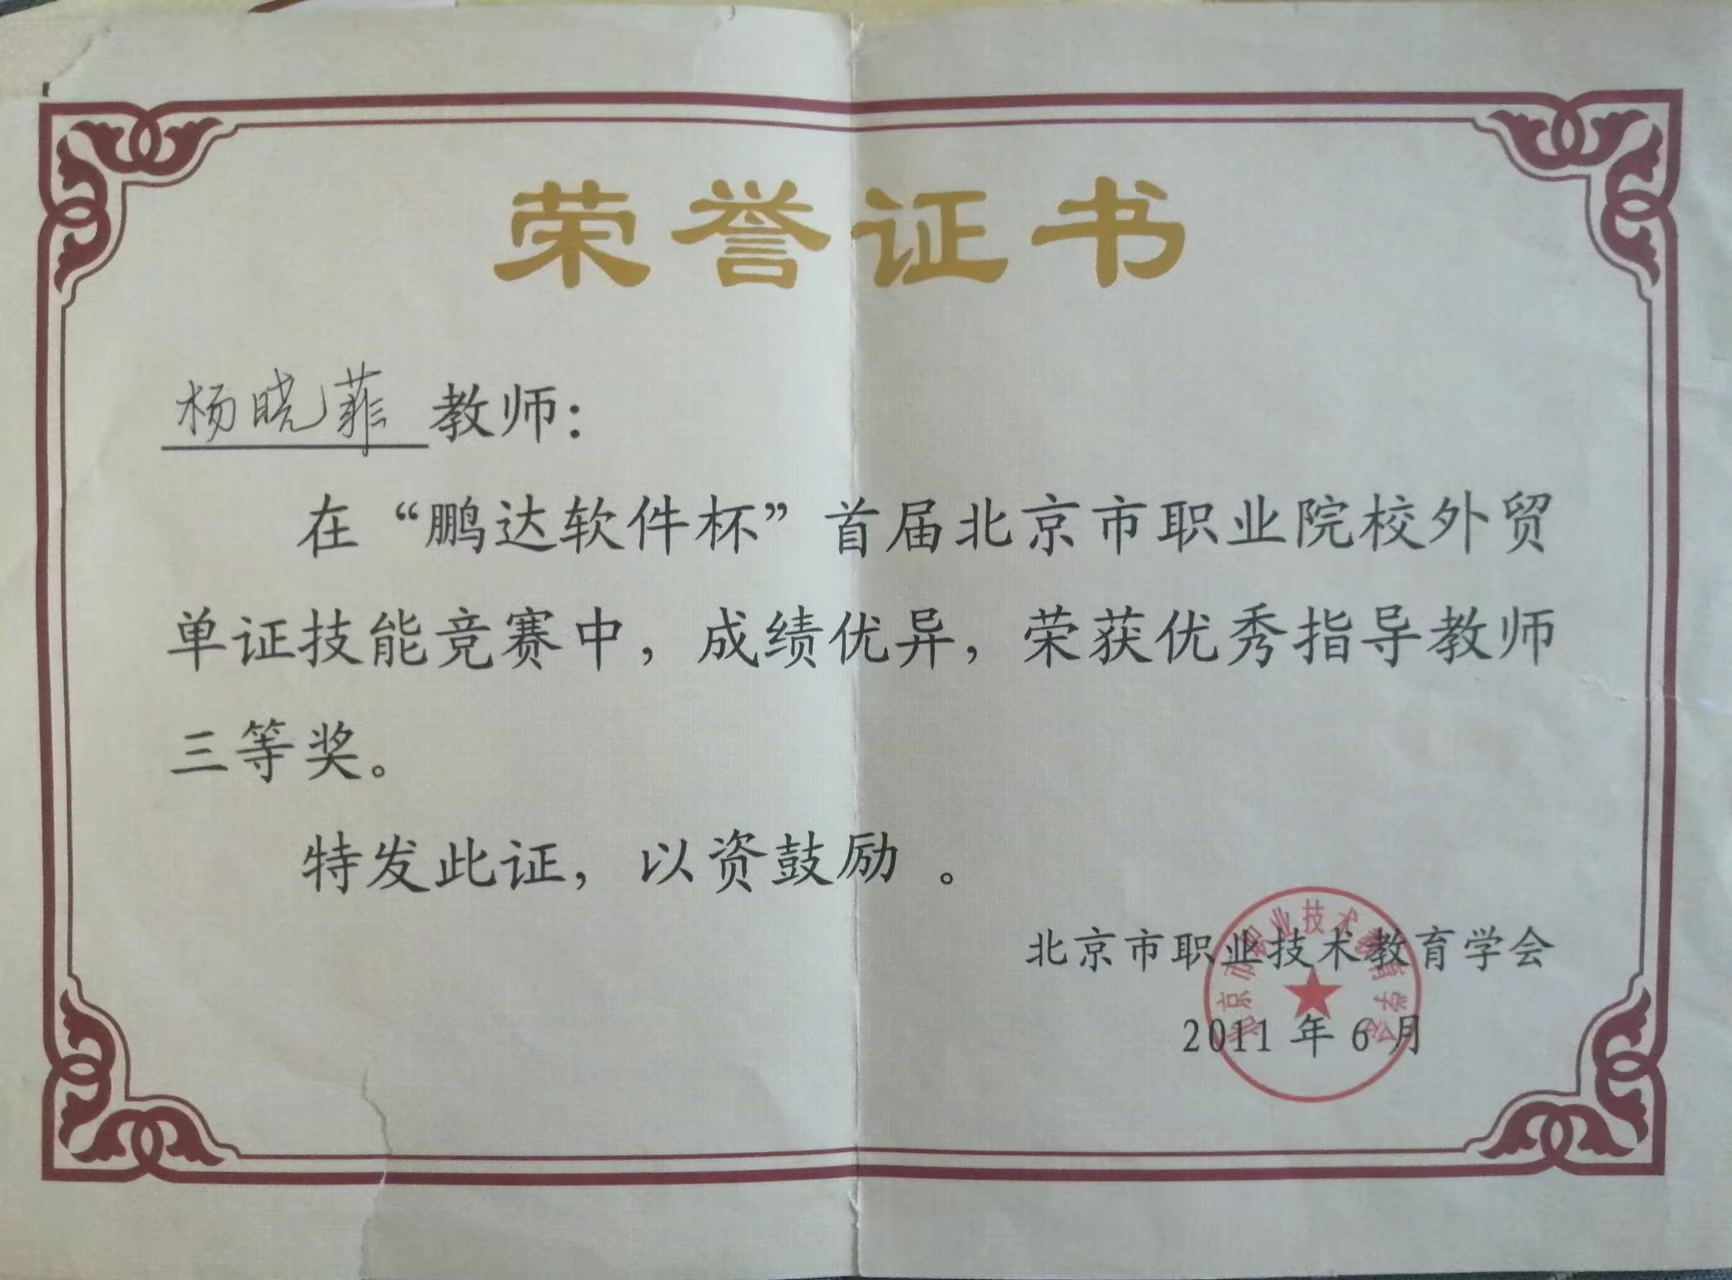 荣誉证书
杨晓菲 教师：
在“鹏达软件杯”首届北京市职业院校外贸
单证技能竞赛中，成绩优异，荣获优秀指导教师
三等奖。
特发此证，以资鼓励 。
北京市职业技术教育学会
2011 年 6 月
北京市职业技术教育学会